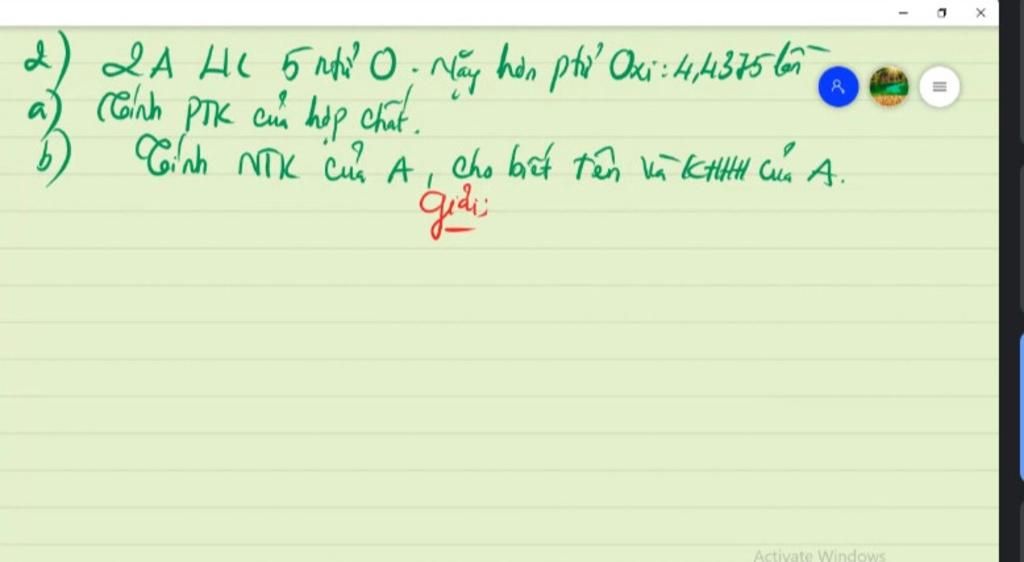 2) 2A LK 5 ntử O. Nặng hơn ptử Oxi: 4,4375 lần
a) Tính PTK của hợp chất.
b) Tính NTK của A, cho biết tên và KHHH của A.
giải:
Activate Windows